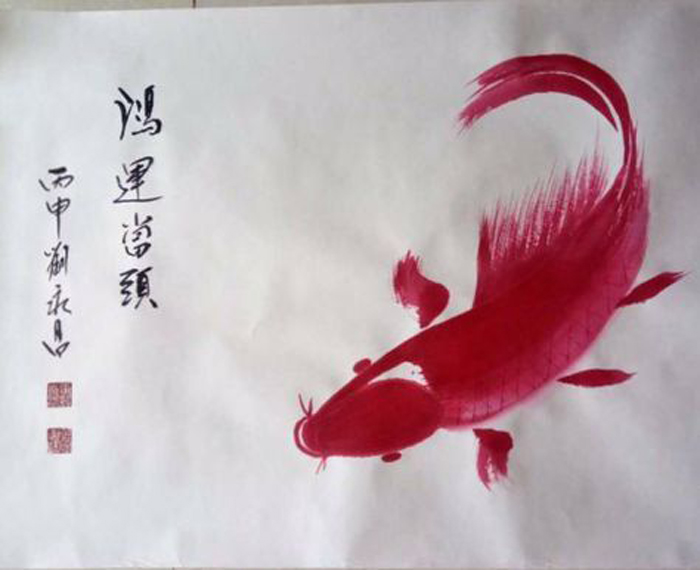 鴻運當頭
丙申劉永昌